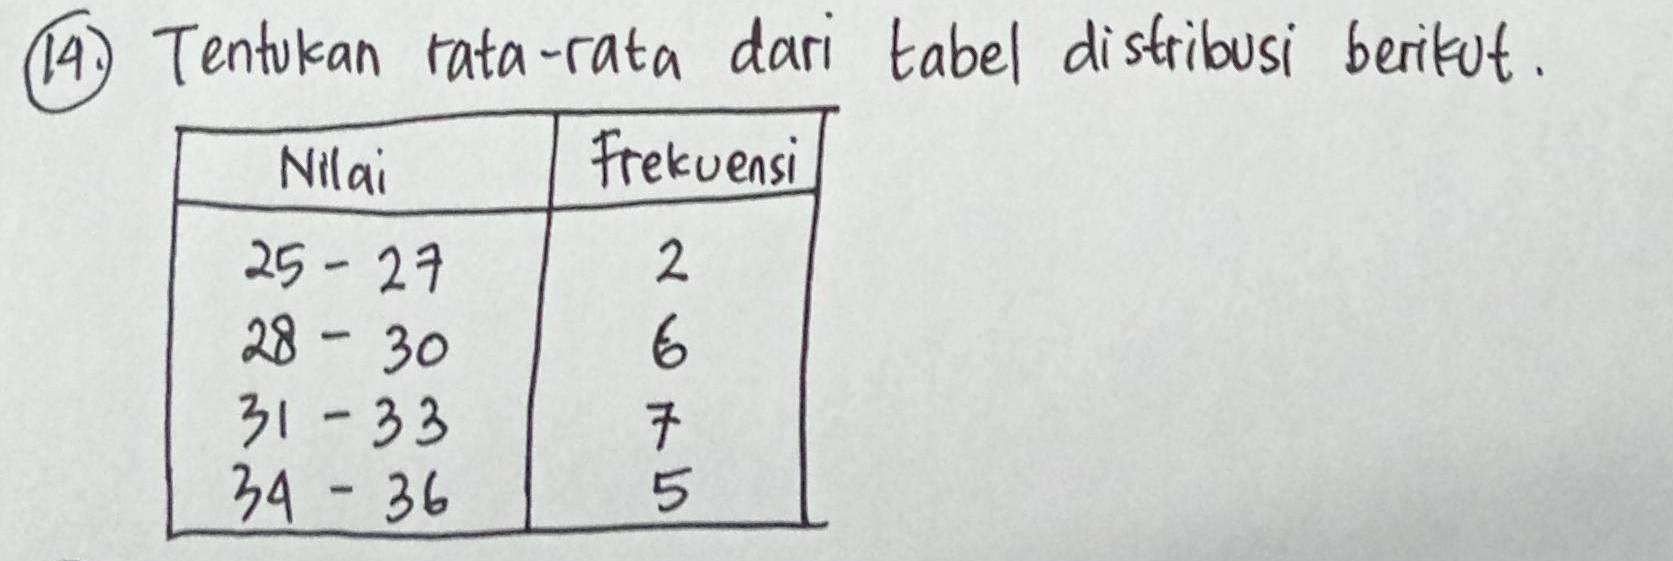 14. Tentukan rata-rata dari tabel distribusi berikut.
Nilai Frekuensi
25 - 27 2
28 - 30 6
31 - 33 7
34 - 36 5